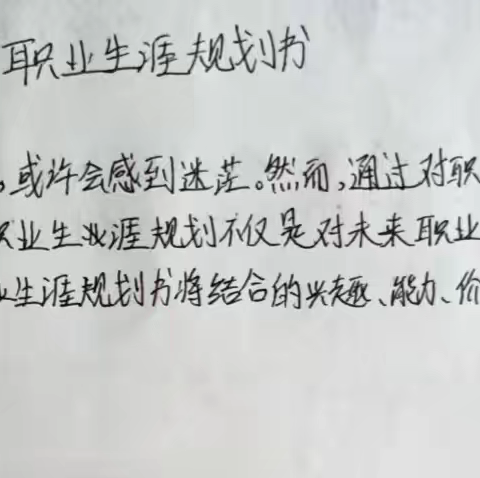 职业生涯规划书
,或许会感到迷茫。然而,通过对职
业生涯规划不仅是对未来职业
生涯规划书将结合的兴趣、能力、价